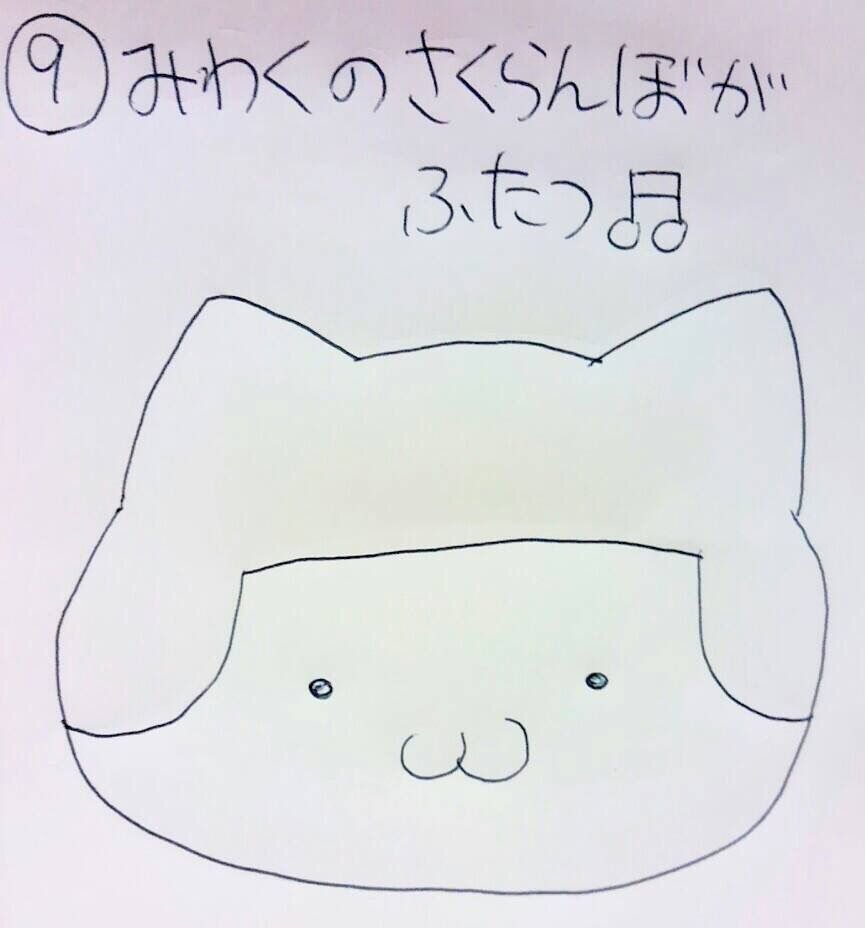 ⑨みわくのさくらんぼが
ふたつ♫